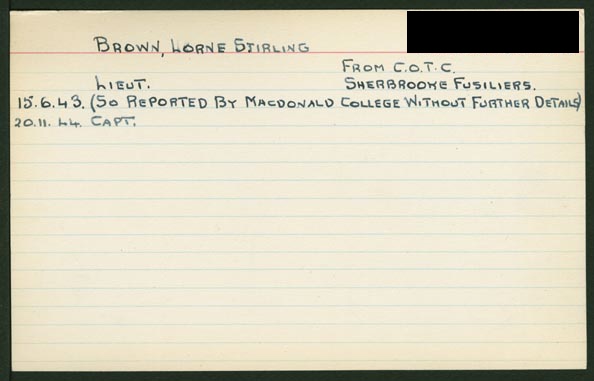 BROWN, LORNE STIRLING
FROM C.O.T.C.
LIEUT. SHERBROOKE FUSILIERS.
15.6.43. (SO REPORTED BY MACDONALD COLLEGE WITHOUT FURTHER DETAILS)
20.11.44. CAPT.